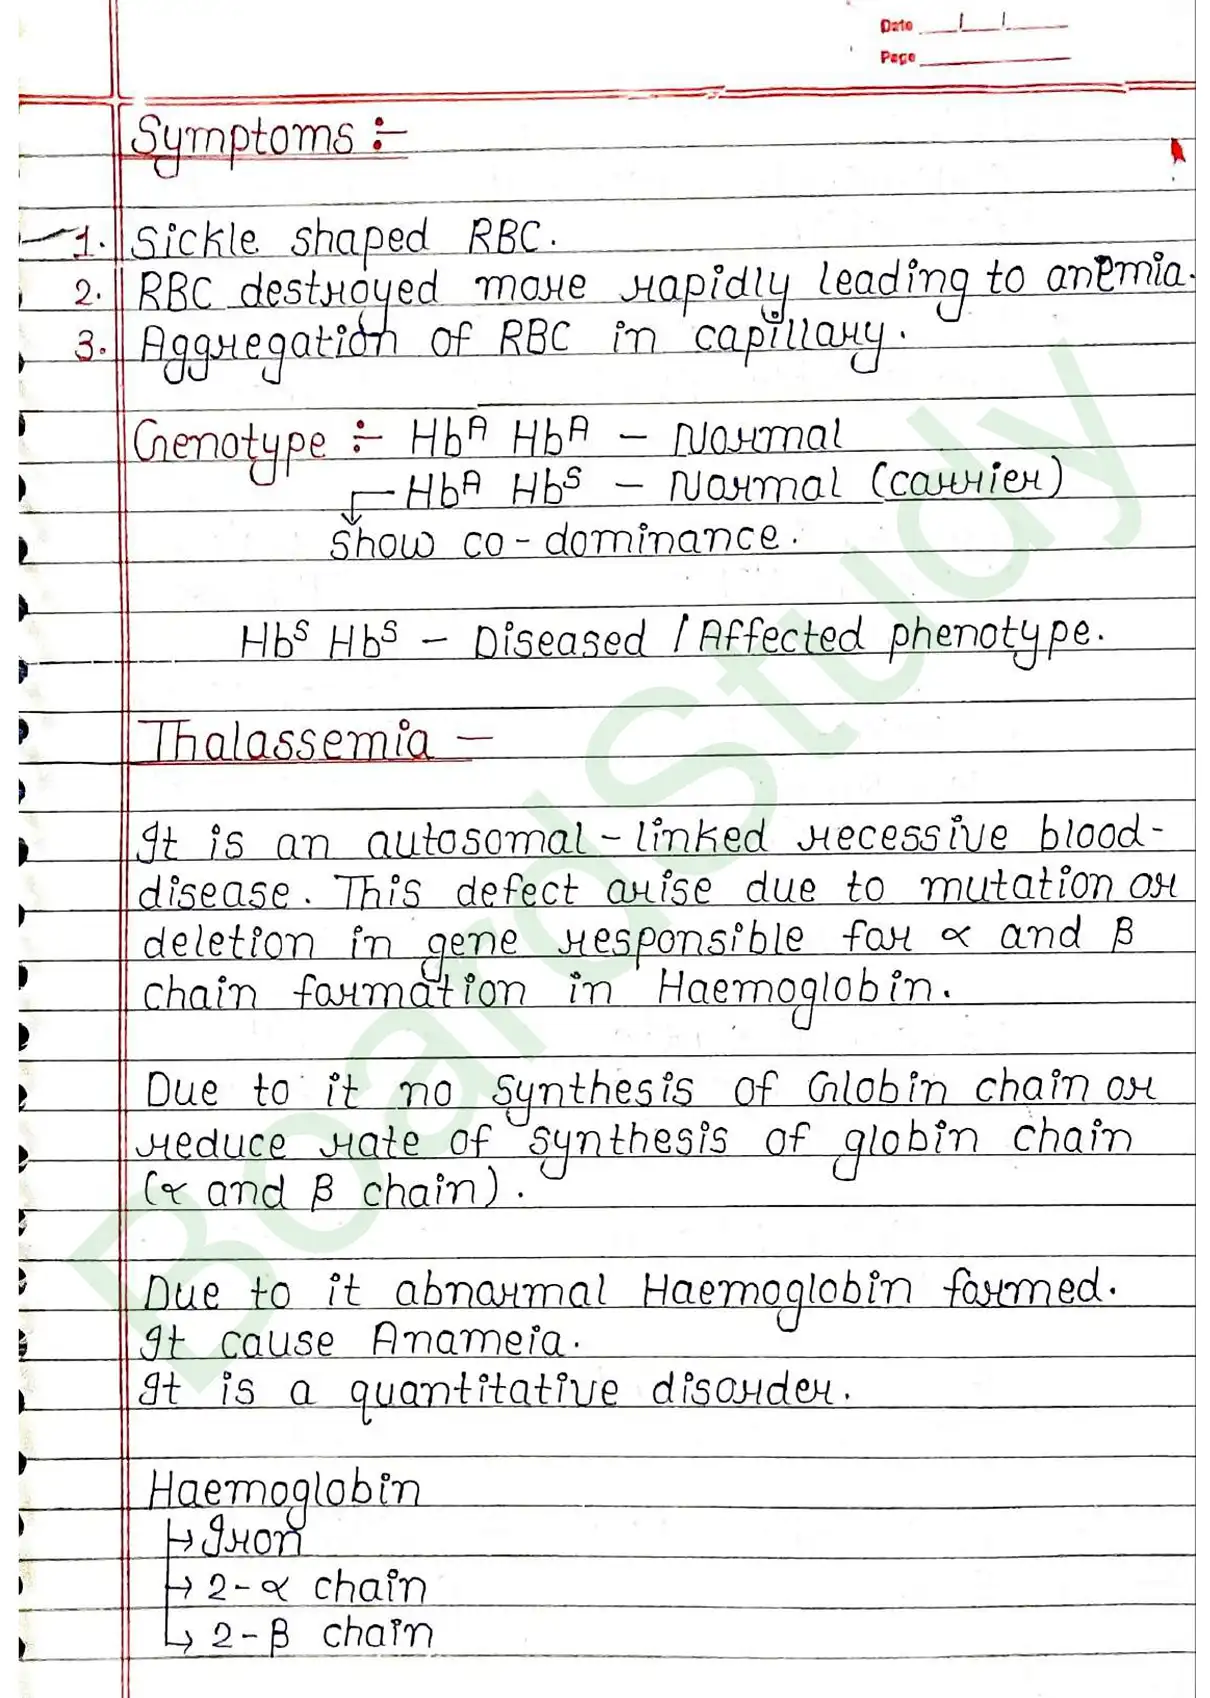 Date
Page
Symptoms :-
1. Sickle shaped RBC.
2. RBC destroyed more rapidly leading to anemia.
3. Aggregation of RBC in capillary.
Genotype :- Hbᴬ Hbᴬ - Normal
Hbᴬ Hbˢ - Normal (carrier)
Show co-dominance.
Hbˢ Hbˢ - Diseased / Affected phenotype.
Thalassemia -
It is an autosomal-linked recessive blood-
disease. This defect arise due to mutation or
deletion in gene responsible for α and β
chain formation in Haemoglobin.
Due to it no synthesis of Globin chain or
reduce rate of synthesis of globin chain
(α and β chain).
Due to it abnormal Haemoglobin formed.
It cause Anameia.
It is a quantitative disorder.
Haemoglobin
→ Iron
→ 2-α chain
→ 2-β chain
BoardStudy